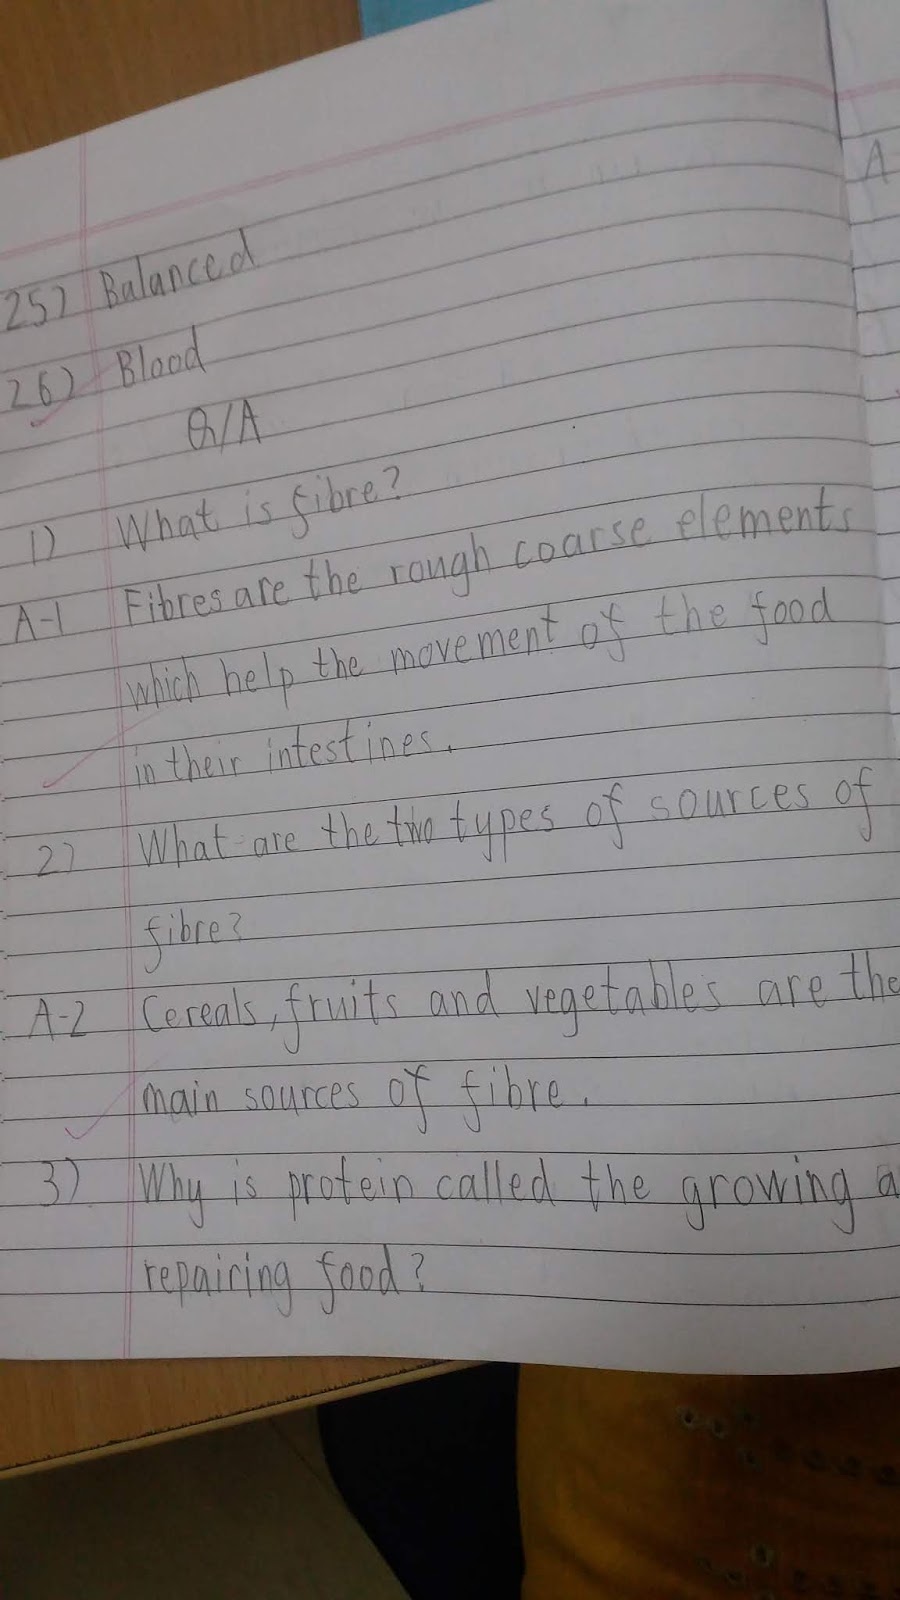 25) Balanced
26) Blood
Q/A
1) What is fibre?
A-1 Fibres are the rough coarse elements
which help the movement of the food
in their intestines.
2) What are the two types of sources of
fibre?
A-2 Cereals, fruits and vegetables are the
main sources of fibre.
3) Why is protein called the growing a
repairing food?
A